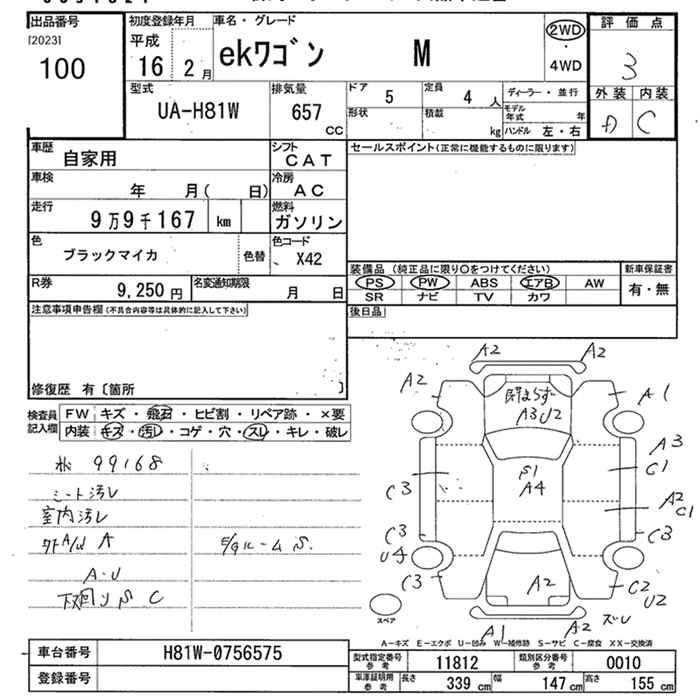 出品番号
[2023]
100
初度登録年月
平成
16 2月
車名・グレード
ekワゴン M
2WD
・
4WD
評価点
3
外装 内装
A C
型式
UA-H81W
排気量
657
CC
ドア 5
定員 4 人
形状
積載 kg
ディーラー・並行
モデル年式 年
ハンドル 左・右
車歴
自家用
シフト
CAT
車検
年 月( 日)
冷房
AC
走行
9万9千167 km
燃料
ガソリン
色
ブラックマイカ
色替
色コード
X42
R券
9,250円
名変通知期限
月 日
セールスポイント(正常に機能するものに限ります)
装備品(純正品に限り〇をつけてください)
PS PW ABS エアB AW
SR ナビ TV カワ
新車保証書
有・無
後日品
注意事項申告欄(不具合内容等は具体的に記入して下さい)
修復歴 有〔箇所 〕
検査員
記入欄
FW キズ・飛石・ヒビ割・リペア跡・×要
内装 キズ・汚レ・コゲ・穴・スレ・キレ・破レ
99168
シート汚レ
室内汚レ
外A/W A
A-U
下廻りS C
E/gルームS.
A2 A2
A2
A1
A3U2
A3
C1
S1
A4
C3
A2
C1
C3
C3
U4
C3
A2
C2
U2
A1
A2
ズレ
スペア
A-キズ E-エクボ U-凹み W-補修跡 S-サビ C-腐食 XX-交換済
車台番号
H81W-0756575
登録番号
型式指定番号
参考
11812
類別区分番号
参考
0010
車庫証明用
参考
長さ 339 cm
幅 147 cm
高さ 155 cm